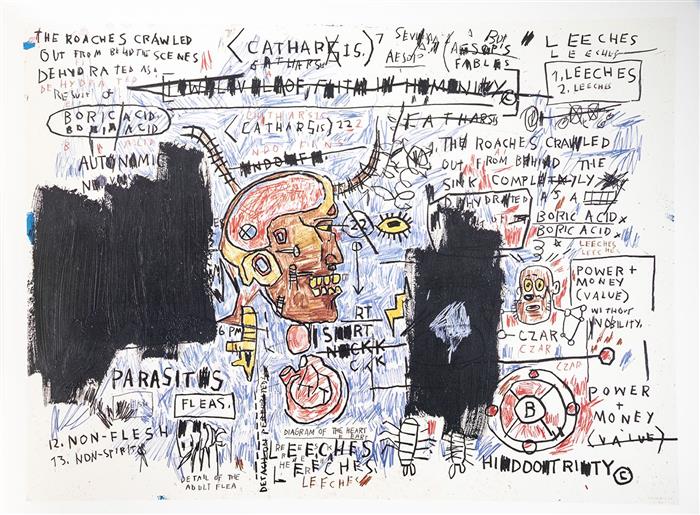 THE ROACHES CRAWLED
OUT FROM BEHIND THE SCENES
DEHYDRATED AS A
BORIC ACID.
BORIC ACID
AUTONOMIC
<CATHARSIS.>
CATHARSIS
AESOP
BUT
(AESOP'S
FABLES
LEECHES
LEECHES
1. LEECHES
2. LEECHES
LOW LEVEL OF FAITH IN HUMANITY ©
CATHARSIS
<CATHARSIS> 222
CATHARSIS
THE ROACHES CRAWLED
OUT FROM BEHIND THE
SINK COMPLETELY
DEHYDRATED AS A
OF BORIC ACID
BORIC ACID
LEECHES
LEECHES
22
POWER +
MONEY
(VALUE)
WITHOUT
NOBILITY.
CZAR
CZAR
CZAR
6 PM
PARASITES
FLEAS.
12. NON-FLESH
13. NON-SPIRITS
DETAIL OF THE
ADULT FLEA
DIAGRAM OF THE HEART
LEECHES
LEECHES.
LEECHES
B
POWER
+
MONEY
(VALUE)
HINDOO TRINITY ©